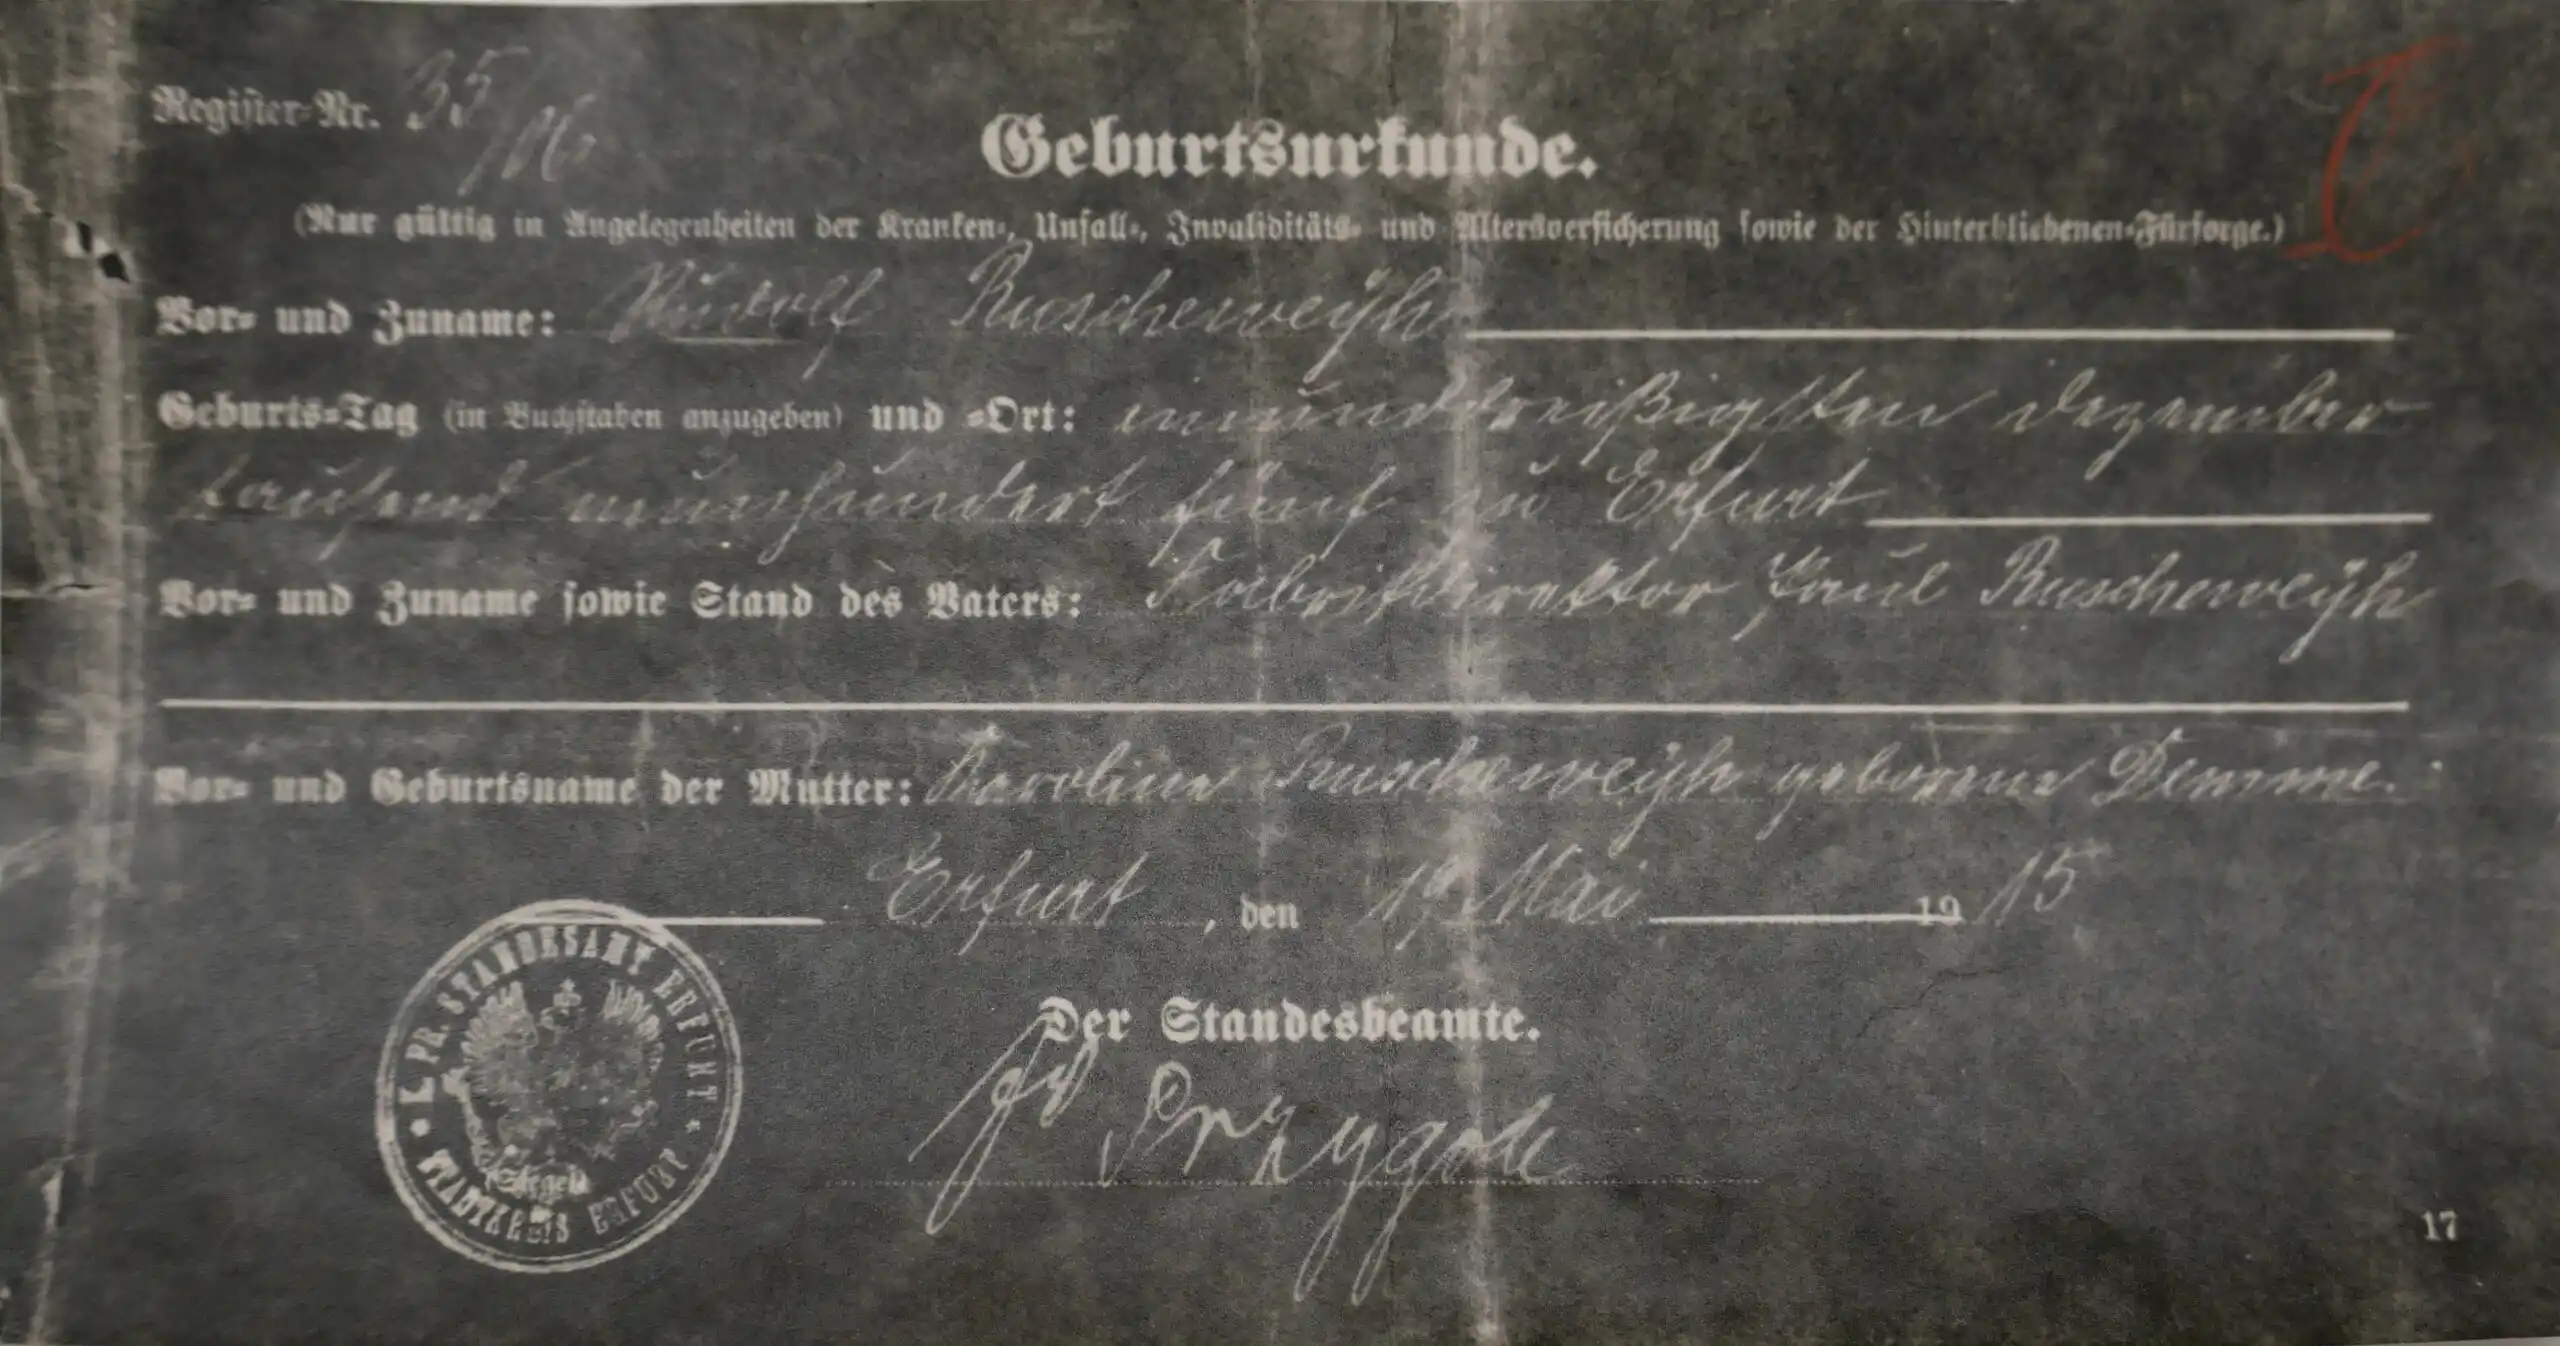 Register-Nr. 35/06
Geburtsurkunde.
(Nur gültig in Angelegenheiten der Kranken-, Unfall-, Invaliditäts- und Altersversicherung sowie der Hinterbliebenen-Fürsorge.)
Vor- und Zuname: Rudolf Ruscheweyh
Geburts-Tag (in Buchstaben anzugeben) und -Ort: einunddreißigsten Dezember
tausend neunhundert fünf zu Erfurt
Vor- und Zuname sowie Stand des Vaters: Fabrikdirektor Paul Ruscheweyh
Vor- und Geburtsname der Mutter: Karoline Ruscheweyh geborene Demme.
Erfurt, den 19 Mai 1915
K. PR. STANDESAMT ERFURT
STADTKREIS ERFURT
(Siegel)
Der Standesbeamte.
17